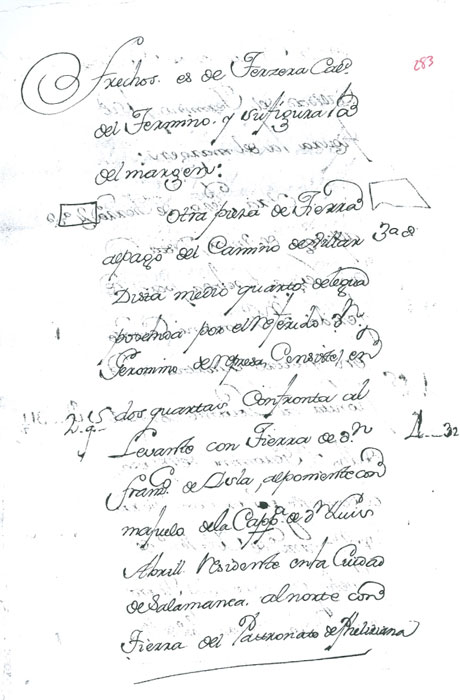 283
trechos. es de Terzera Cald.
del Termino. y su figura la
del margen:
otra pieza de Tierra
al pago del Camino de Villar 3a
Dista medio quarto de legua
poseida por el Referido Dn
Geronimo de Consiste en
2. qs dos quartas, Confronta al
Levante con Tierra de Dn 1....32
Franco. de Isla, al poniente con
majuelo de la Cappa. de Dn Luis
Abrill Residente en la Ciudad
de Salamanca. al norte con
Tierra del Patronato de